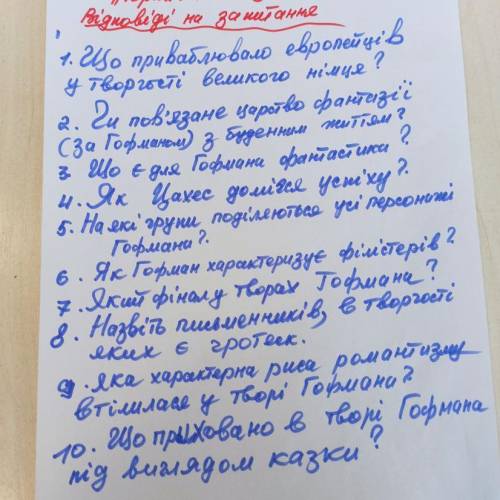 Відповіді на запитання
1. Що приваблювало європейців
у творчості великого німця?
2. Чи пов'язане царство фантазії
(за Гофманом) з буденним життям?
3 Що є для Гофмана фантастика?
4. Як Цахес домігся успіху?
5. На які групи поділяються усі персонажі
Гофмана?
6. Як Гофман характеризує філістерів?
7. Який фінал у творах Гофмана?
8. Назвіть письменників, в творчості
яких є гротеск.
9. яка характерна риса романтизму
втілилася у творі Гофмана?
10. Що приховано в творі Гофмана
під виглядом казки?